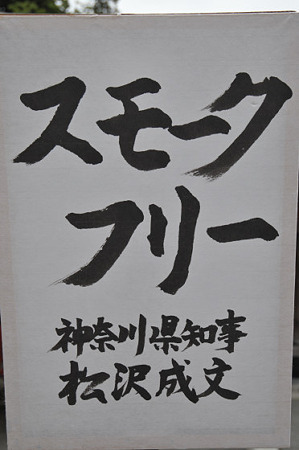 スモーク
フリー
神奈川県知事
松沢成文